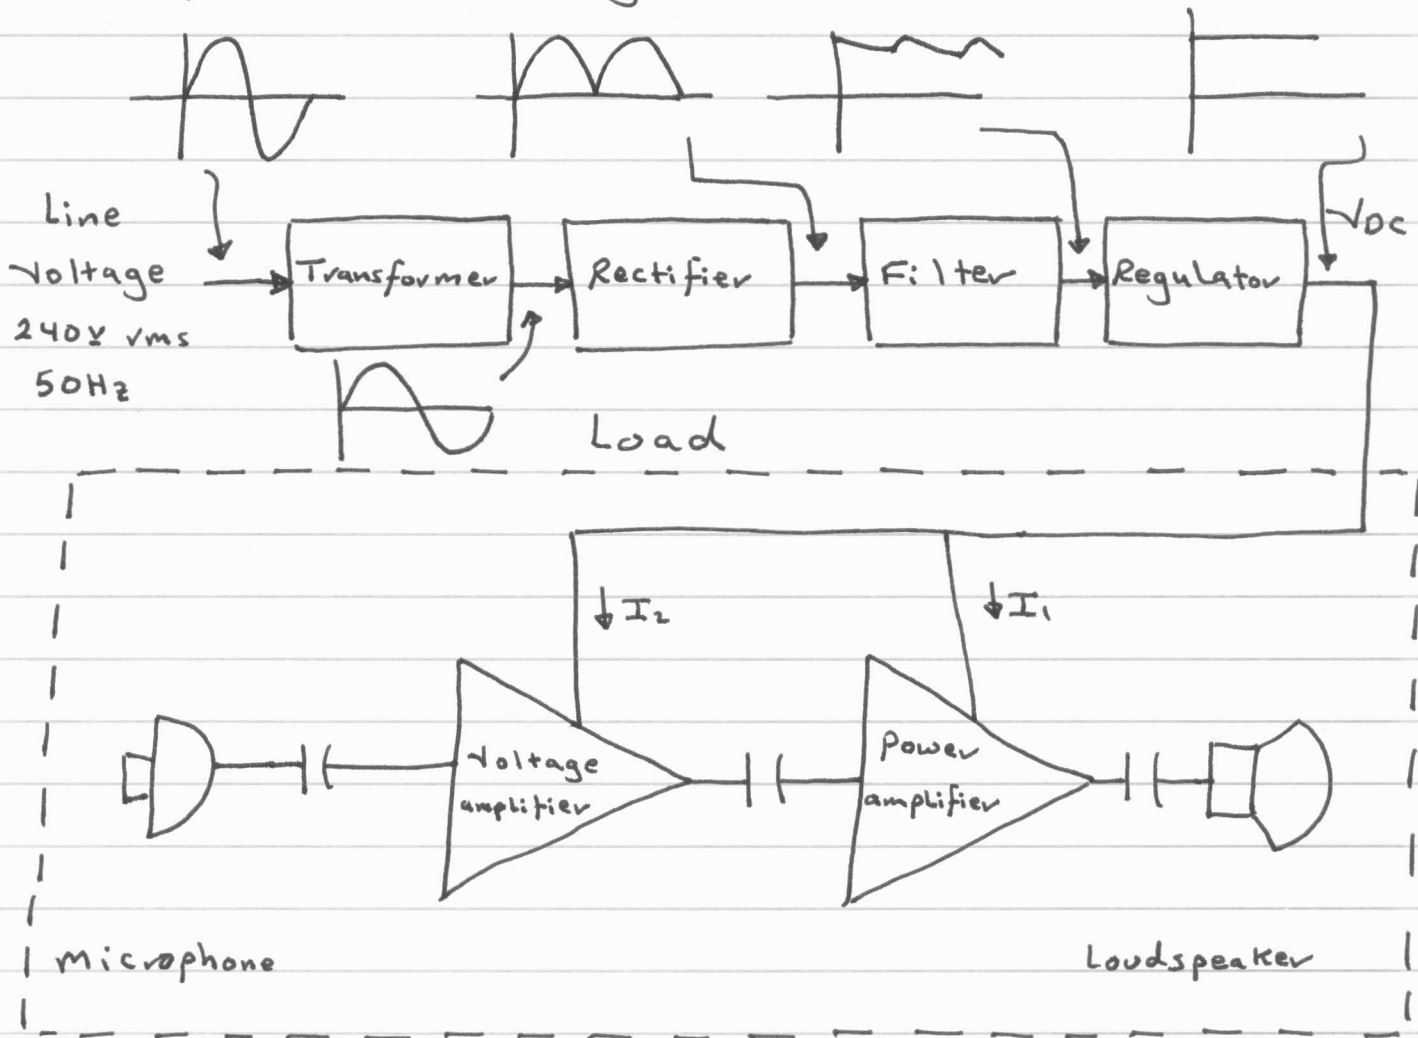 Line
Voltage
240V rms
50Hz
Transformer
Rectifier
Filter
Regulator
VDC
Load
I2
I1
Voltage
amplifier
Power
amplifier
Microphone
Loudspeaker